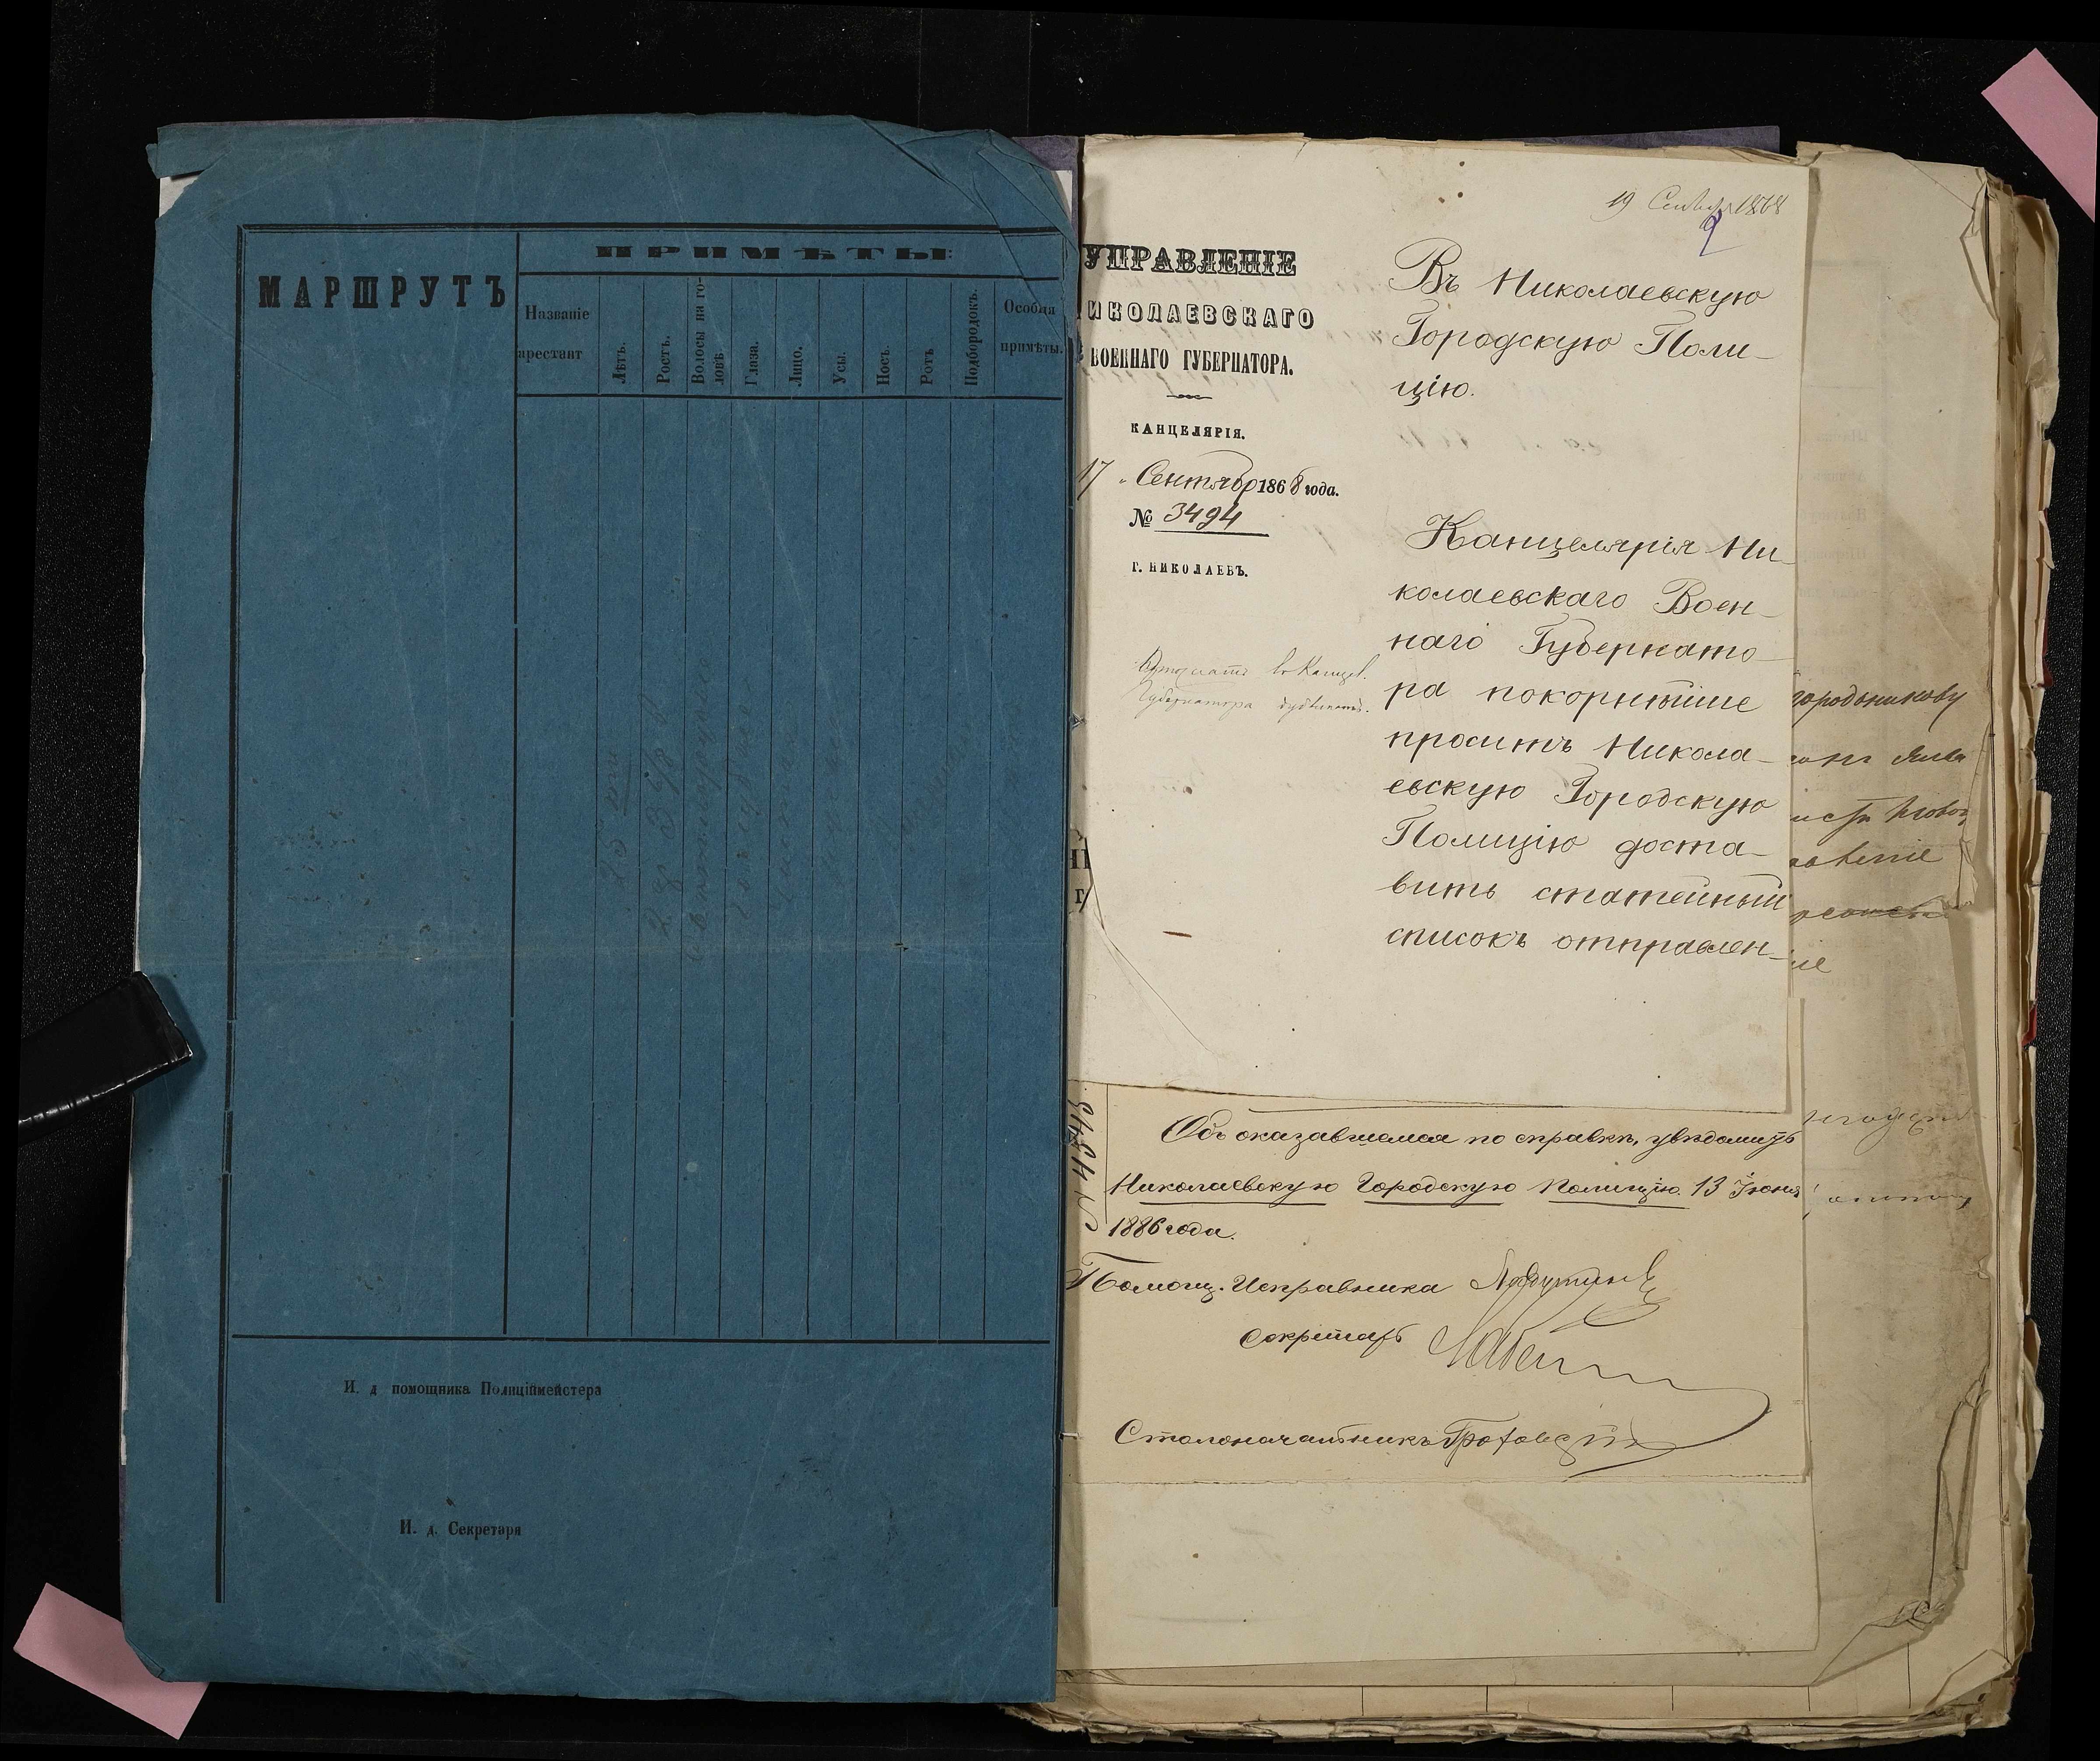 МАРШРУТЪ
ПРИМѢТЫ:
Названіе
арестант
Лѣтъ.
Ростъ.
Волосы на го-
ловѣ
Глаза.
Лицо.
Усы.
Носъ.
Ротъ
Подбородокъ.
Особыя
примѣты.
И. д помощника Полиціймейстера
И. д. Секретаря
19 Сентября 1868
УПРАВЛЕНІЕ
ИКОЛАЕВСКАГО
ВОЕННАГО ГУБЕРНАТОРА.
КАНЦЕЛЯРІЯ.
17 „ Сентябр 1868 года.
№ 3494
Г. НИКОЛАЕВЪ.
Въ Николаевскую
Городскую Поли-
цію.
Канцелярія Ни-
колаевскаго Воен-
наго Губернато-
ра покорнѣйше
проситъ Никола-
евскую Городскую
Полицію доста-
вить статейный
списокъ отправлен-
Губернатора
Объ оказавшемся по справкѣ, увѣдомить
Николаевскую Городскую Полицію. 13 Іюня
1886 года.
Помощ. Исправника
Секретарь
Столоначальникъ
№ 4343
городникову